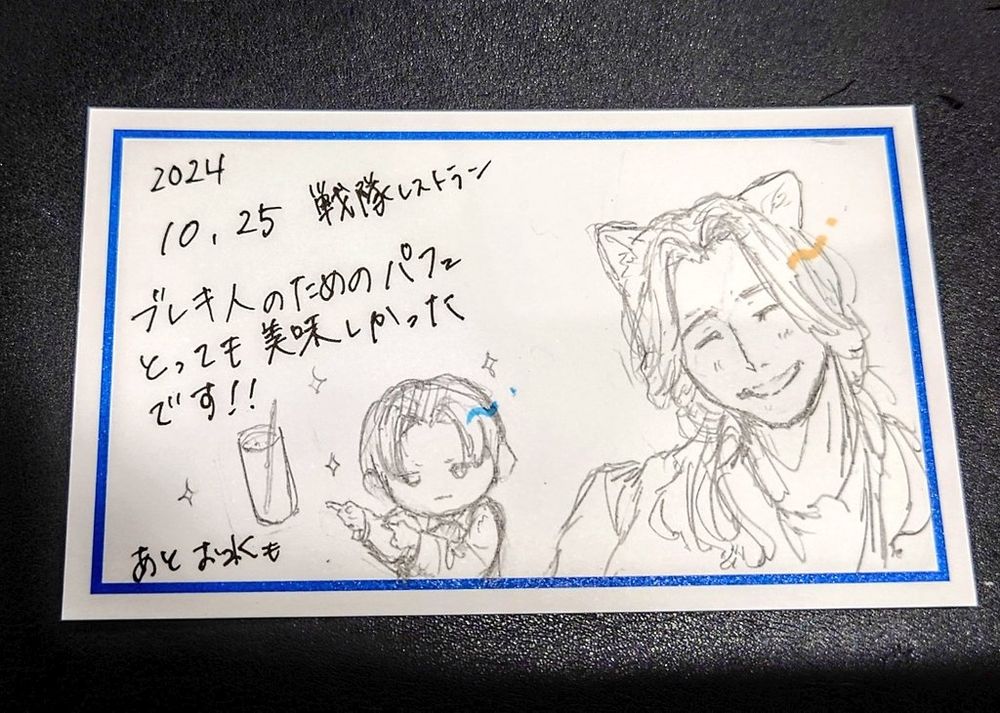 2024
10.25 戦隊レストラン
ブレキ人のためのパフェ
とっても美味しかった
です!!
あと お水も